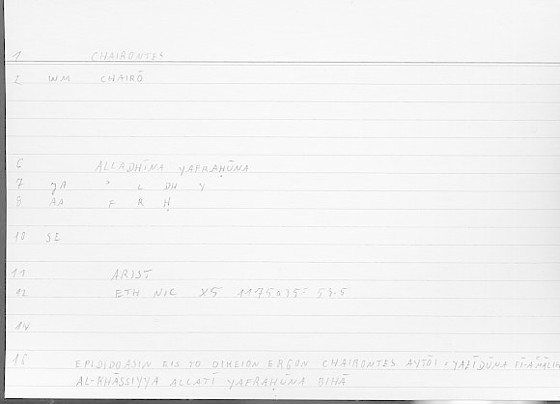 1 CHAIRONTES
2 WM CHAIRŌ
6 ALLADHĪNA YAFRAḤŪNA
7 YA ʾ L DH Y
8 AA F R Ḥ
10 SE
11 ARIST
12 ETH NIC X5 1175a35= 53.5
14
16 EPIDIDOASIN EIS TO OIKEION ERGON CHAIRONTES AYTŌI : YAZĪDŪNA FĪ
AL-KHĀSSIYYA ALLATĪ YAFRAḤŪNA BIHĀ